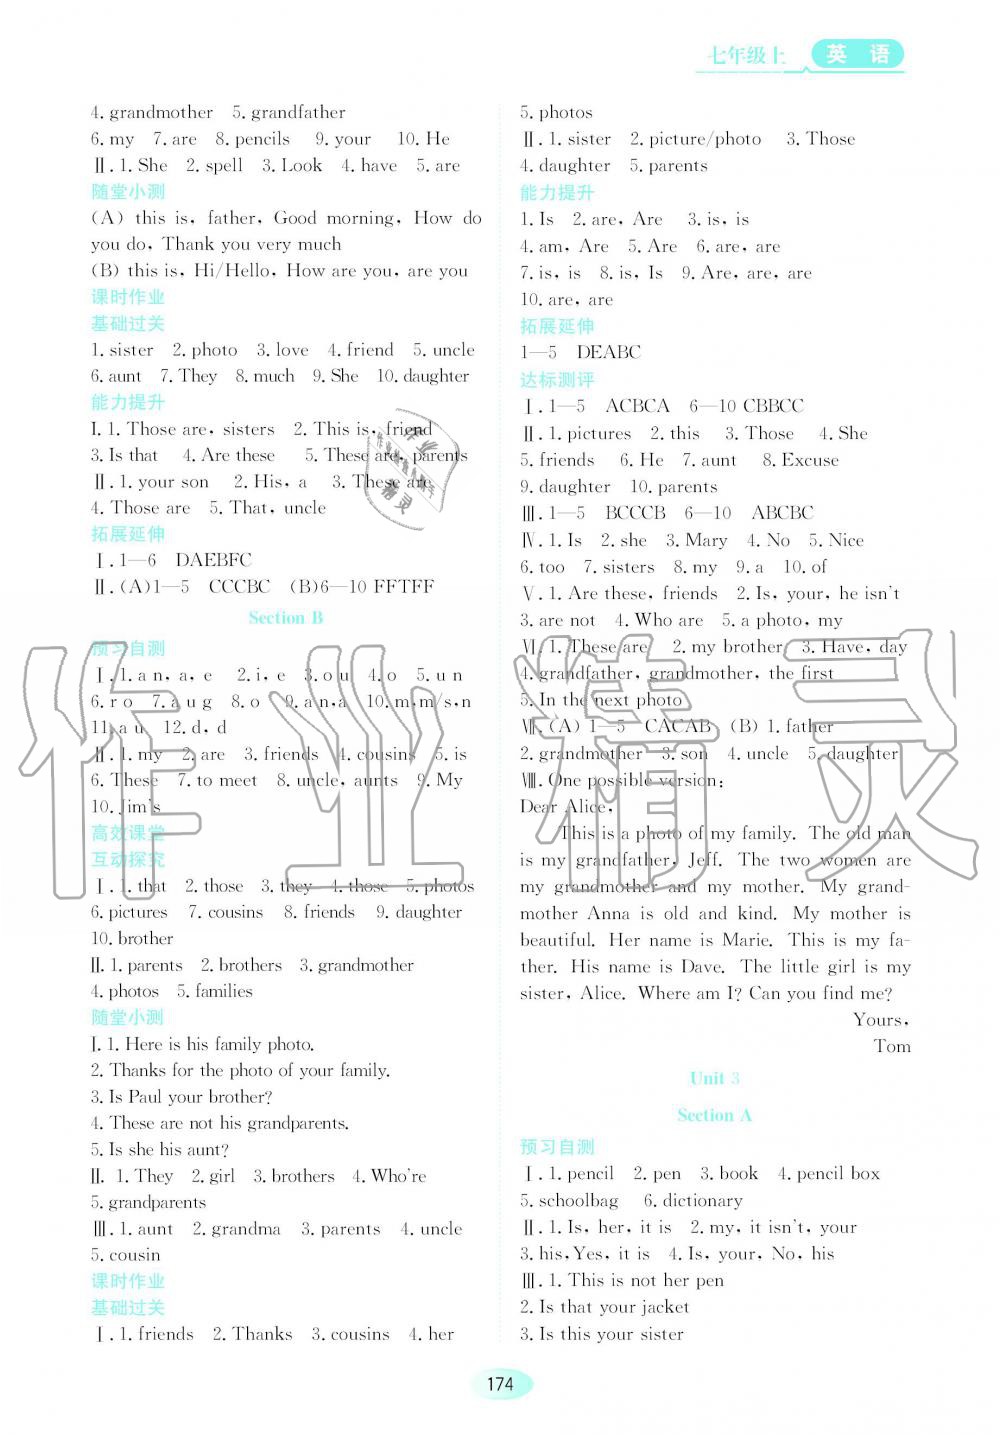 七年级上 英 语
4. grandmother 5. grandfather
6. my 7. are 8. pencils 9. your 10. He
Ⅱ. 1. She 2. spell 3. Look 4. have 5. are
随堂小测
(A) this is, father, Good morning, How do
you do, Thank you very much
(B) this is, Hi/Hello, How are you, are you
课时作业
基础过关
1. sister 2. photo 3. love 4. friend 5. uncle
6. aunt 7. They 8. much 9. She 10. daughter
能力提升
Ⅰ. 1. Those are, sisters 2. This is, friend
3. Is that 4. Are these 5. These are, parents
Ⅱ. 1. your son 2. His, a 3. These are
4. Those are 5. That, uncle
拓展延伸
Ⅰ. 1—6 DAEBFC
Ⅱ. (A)1—5 CCCBC (B)6—10 FFTFF
Section B
预习自测
Ⅰ. 1. a n, a, e 2. i, e 3. o u 4. o 5. u n
6. r o 7. a u g 8. o 9. a n, a 10. m, m/s, n
11. a u 12. d, d
Ⅱ. 1. my 2. are 3. friends 4. cousins 5. is
6. These 7. to meet 8. uncle, aunts 9. My
10. Jim's
高效课堂
互动探究
Ⅰ. 1. that 2. those 3. they 4. those 5. photos
6. pictures 7. cousins 8. friends 9. daughter
10. brother
Ⅱ. 1. parents 2. brothers 3. grandmother
4. photos 5. families
随堂小测
Ⅰ. 1. Here is his family photo.
2. Thanks for the photo of your family.
3. Is Paul your brother?
4. These are not his grandparents.
5. Is she his aunt?
Ⅱ. 1. They 2. girl 3. brothers 4. Who're
5. grandparents
Ⅲ. 1. aunt 2. grandma 3. parents 4. uncle
5. cousin
课时作业
基础过关
Ⅰ. 1. friends 2. Thanks 3. cousins 4. her
5. photos
Ⅱ. 1. sister 2. picture/photo 3. Those
4. daughter 5. parents
能力提升
1. Is 2. are, Are 3. is, is
4. am, Are 5. Are 6. are, are
7. is, is 8. is, Is 9. Are, are, are
10. are, are
拓展延伸
1—5 DEABC
达标测评
Ⅰ. 1—5 ACBCA 6—10 CBBCC
Ⅱ. 1. pictures 2. this 3. Those 4. She
5. friends 6. He 7. aunt 8. Excuse
9. daughter 10. parents
Ⅲ. 1—5 BCCCB 6—10 ABCBC
Ⅳ. 1. Is 2. she 3. Mary 4. No 5. Nice
6. too 7. sisters 8. my 9. a 10. of
Ⅴ. 1. Are these, friends 2. Is, your, he isn't
3. are not 4. Who are 5. a photo, my
Ⅵ. 1. These are 2. my brother 3. Have, day
4. grandfather, grandmother, the first
5. In the next photo
Ⅶ. (A) 1—5 CACAB (B) 1. father
2. grandmother 3. son 4. uncle 5. daughter
Ⅷ. One possible version:
Dear Alice,
This is a photo of my family. The old man
is my grandfather, Jeff. The two women are
my grandmother and my mother. My grand-
mother Anna is old and kind. My mother is
beautiful. Her name is Marie. This is my fa-
ther. His name is Dave. The little girl is my
sister, Alice. Where am I? Can you find me?
Yours,
Tom
Unit 3
Section A
预习自测
Ⅰ. 1. pencil 2. pen 3. book 4. pencil box
5. schoolbag 6. dictionary
Ⅱ. 1. Is, her, it is 2. my, it isn't, your
3. his, Yes, it is 4. Is, your, No, his
Ⅲ. 1. This is not her pen
2. Is that your jacket
3. Is this your sister
174
作业精灵